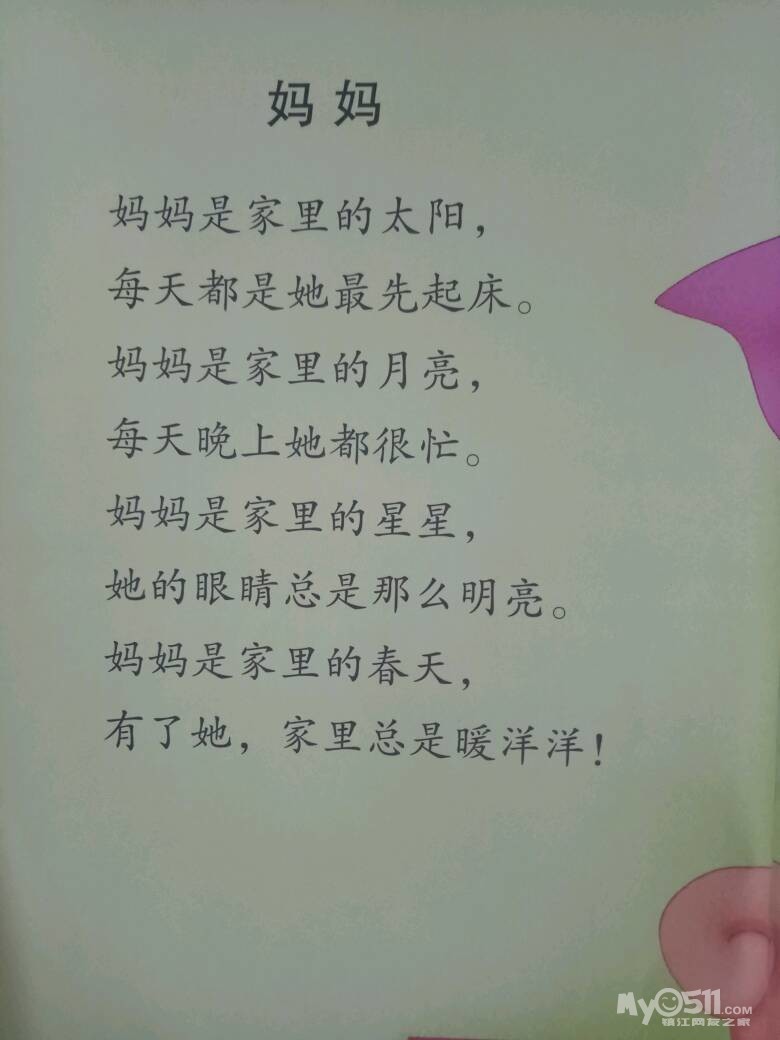 妈妈
妈妈是家里的太阳，
每天都是她最先起床。
妈妈是家里的月亮，
每天晚上她都很忙。
妈妈是家里的星星，
她的眼睛总是那么明亮。
妈妈是家里的春天，
有了她，家里总是暖洋洋！
My0511.COM
镇江网友之家